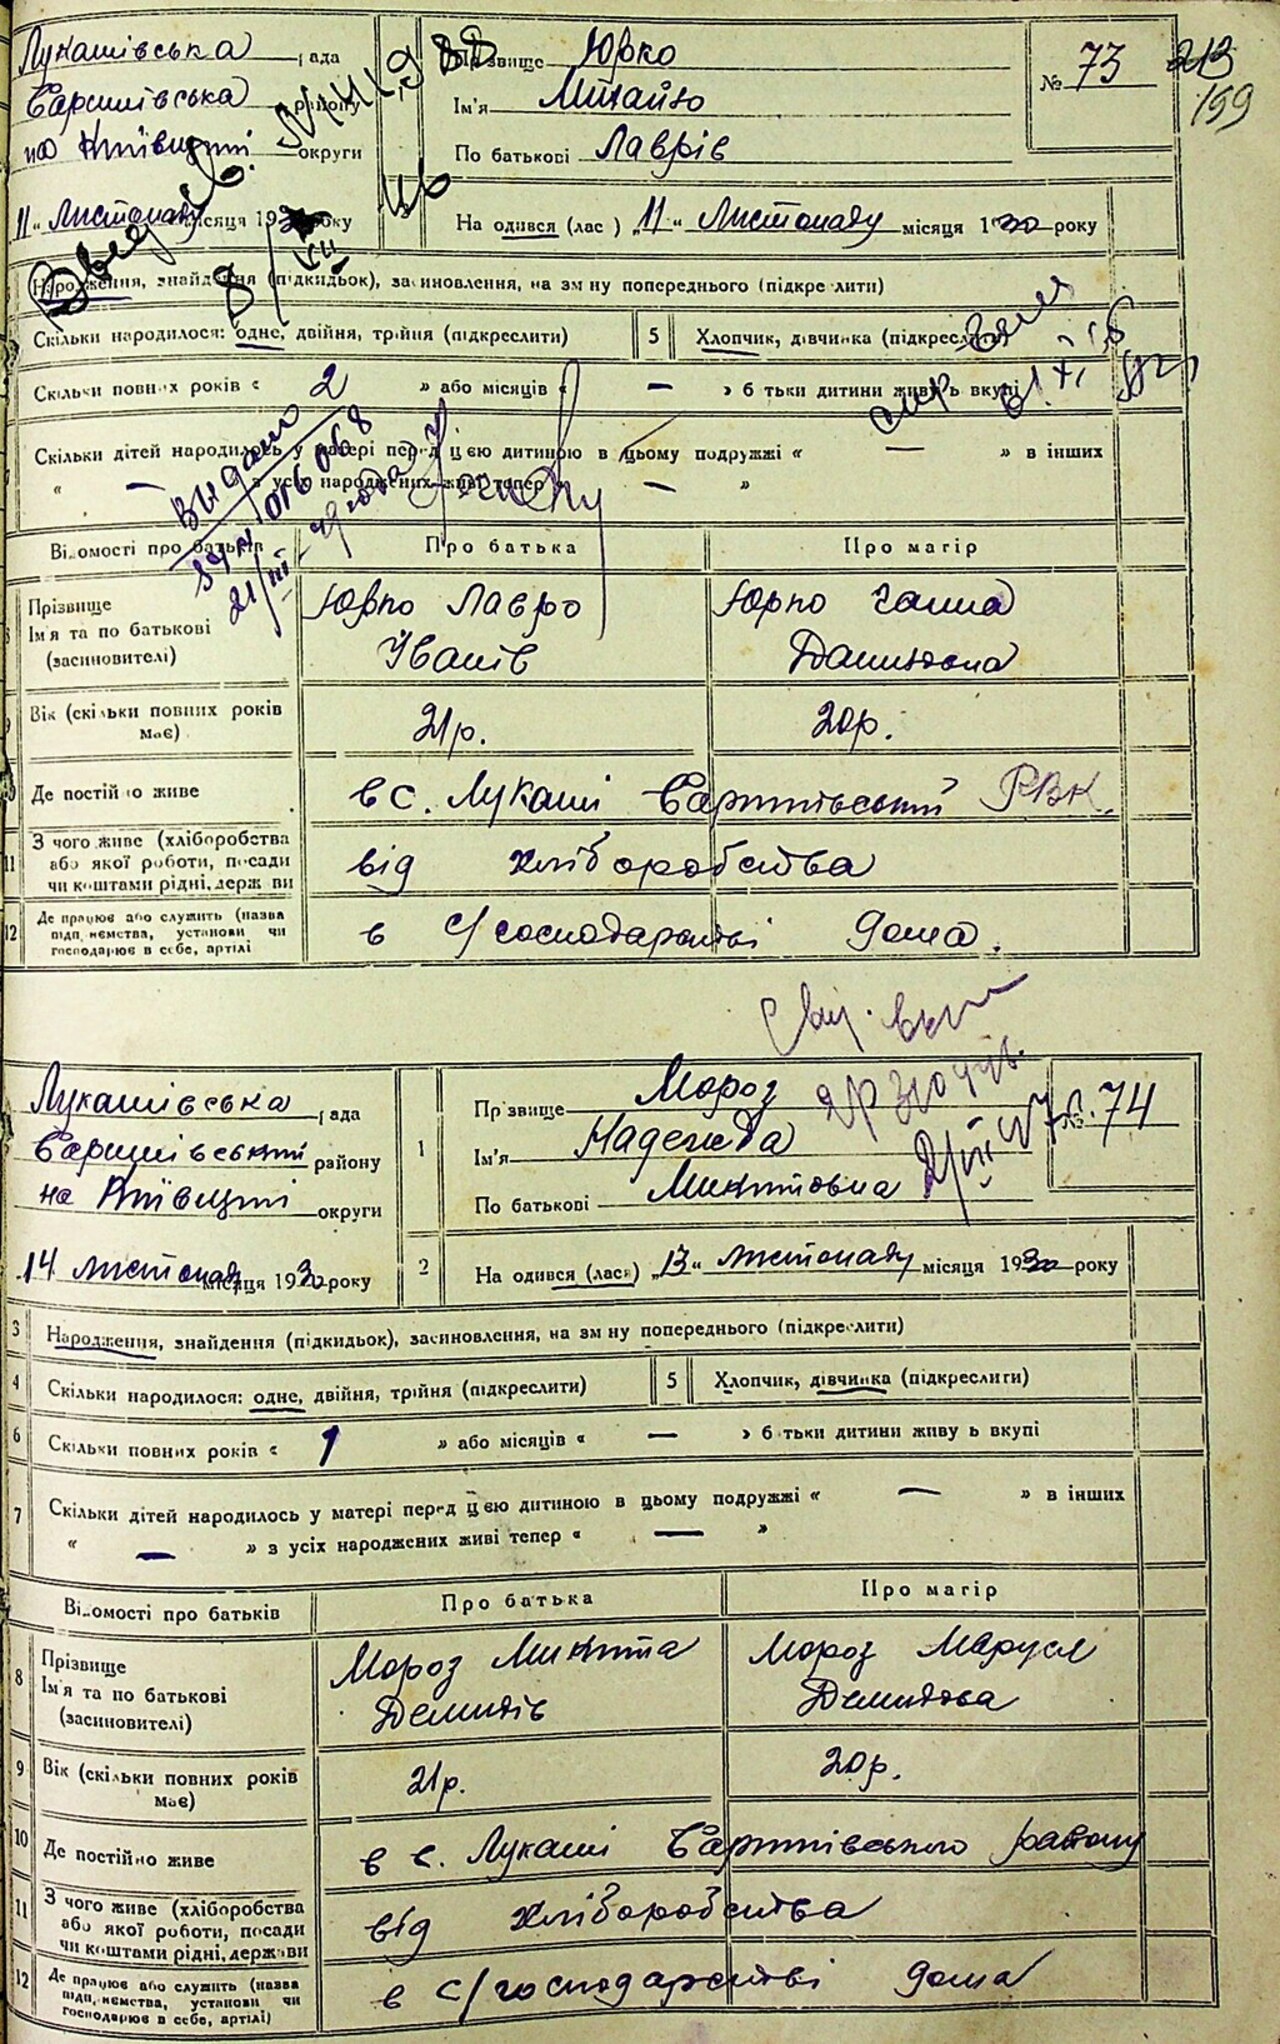 Лукашівська рада
Баришівська району
на Київщині округи
"11" Листопаду місяця 1930 року
Прізвище Юрко
Ім'я Михайло
По батькові Лаврів
№ 73
213
159
На одився (лас ) "11" Листопаду місяця 1930 року
Народження, знайдення (підкидьок), засиновлення, на зм ну попереднього (підкре лити)
Скільки народилося: одне, двійня, трійня (підкреслити)
5 Хлопчик, дівчинка (підкреслити)
Скільки повних років « 2 » або місяців « — » б тьки дитини живу ь вкупі
Скільки дітей народилось у матері перед цією дитиною в цьому подружжі « — » в інших
« — » з усіх народжених живі тепер « — »
Выдано
21/III
Відомості про батьків Про батька Про матір
Прізвище
Ім'я та по батькові
(засиновителі)
Юрко Лавро
Іванів
Юрко Ганна
Данилова
Вік (скільки повних років має) 21р. 20р.
Де постійно живе в с. Лукаші Баришівський РВК.
11 З чого живе (хліборобства
або якої роботи, посади
чи коштами рідні, держ ви
від хліборобства
12 Де працює або служить (назва
підп ємства, установи чи
господарює в себе, артілі
в с/господарстві дома.
Лукашівська рада
Баришівський району
на Київщині округи
14 листопаду місяця 1930 року
1 Пр звище Мороз
Ім'я Надежда
По батькові Микитовна
№. 74
2 На одився (лась) "13" листопаду місяця 1930 року
3 Народження, знайдення (підкидьок), засиновлення, на зм ну попереднього (підкреслити)
4 Скільки народилося: одне, двійня, трійня (підкреслити)
5 Хлопчик, дівчинка (підкреслити)
6 Скільки повних років « 1 » або місяців « — » б тьки дитини живу ь вкупі
7 Скільки дітей народилось у матері перед цією дитиною в цьому подружжі « — » в інших
« — » з усіх народжених живі тепер « — »
Відомості про батьків Про батька Про матір
8 Прізвище
Ім'я та по батькові
(засиновителі)
Мороз Микита
Демидів
Мороз Маруся
Демидова
9 Вік (скільки повних років має) 21р. 20р.
10 Де постійно живе в с. Лукаші Баришівського району
11 З чого живе (хліборобства
або якої роботи, посади
чи коштами рідні, держави
від хліборобства
12 Де працює або служить (назва
підп, ємства, установи чи
господарює в себе, артілі)
в с/господарстві дома